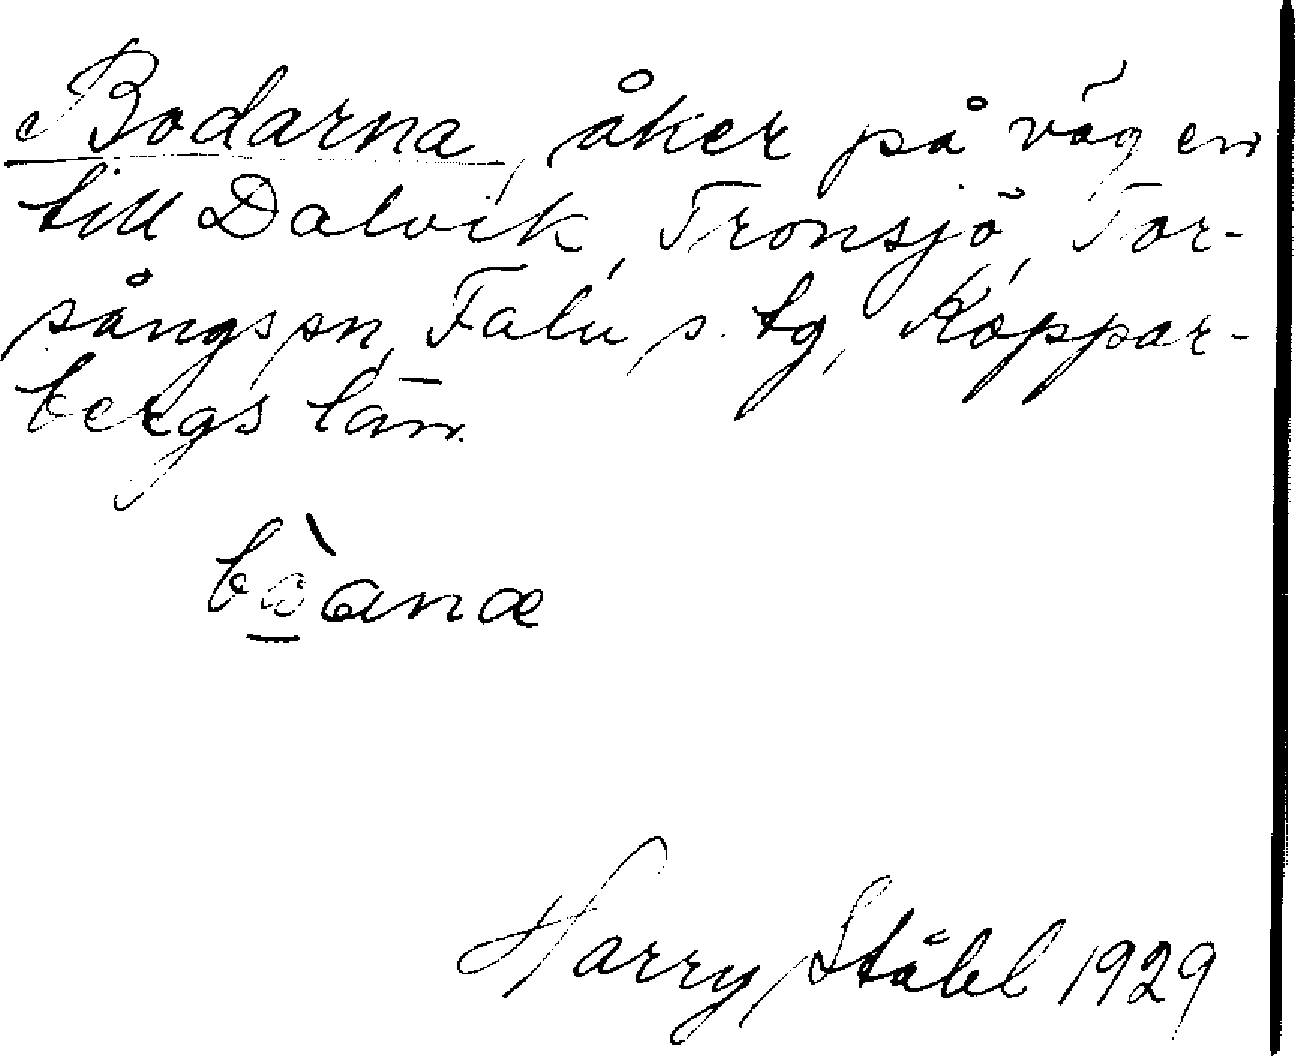 Bodarna, åker på vägen
till Dalvik, Tronsjö, Tor-
sångs sn, Falu s. tg, Koppar-
bergs län.
Harry Ståhl 1929